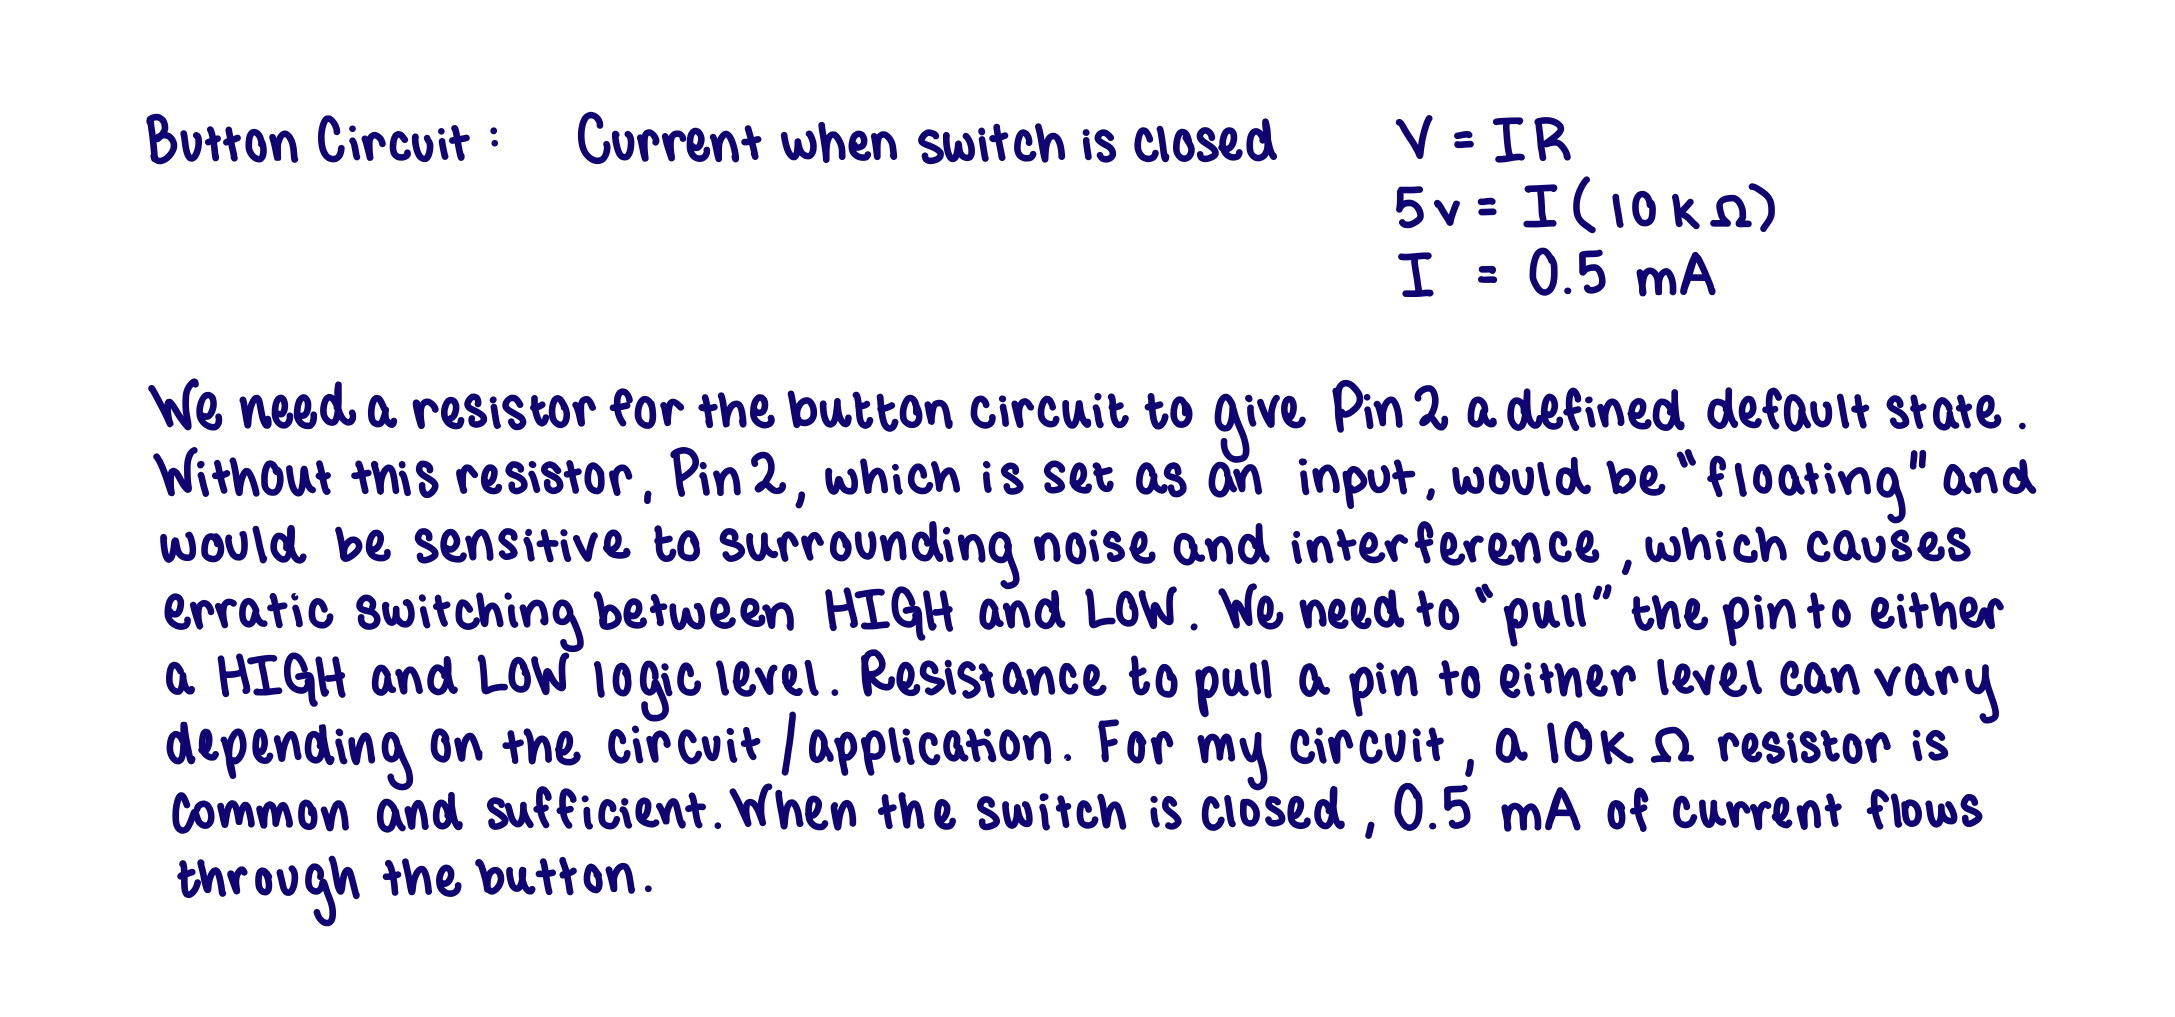 Button Circuit : Current when switch is closed V = IR
5v = I(10kΩ)
I = 0.5 mA
We need a resistor for the button circuit to give Pin 2 a defined default state.
Without this resistor, Pin 2, which is set as an input, would be "floating" and
would be sensitive to surrounding noise and interference, which causes
erratic switching between HIGH and LOW. We need to "pull" the pin to either
a HIGH and LOW logic level. Resistance to pull a pin to either level can vary
depending on the circuit/application. For my circuit, a 10k Ω resistor is
common and sufficient. When the switch is closed, 0.5 mA of current flows
through the button.